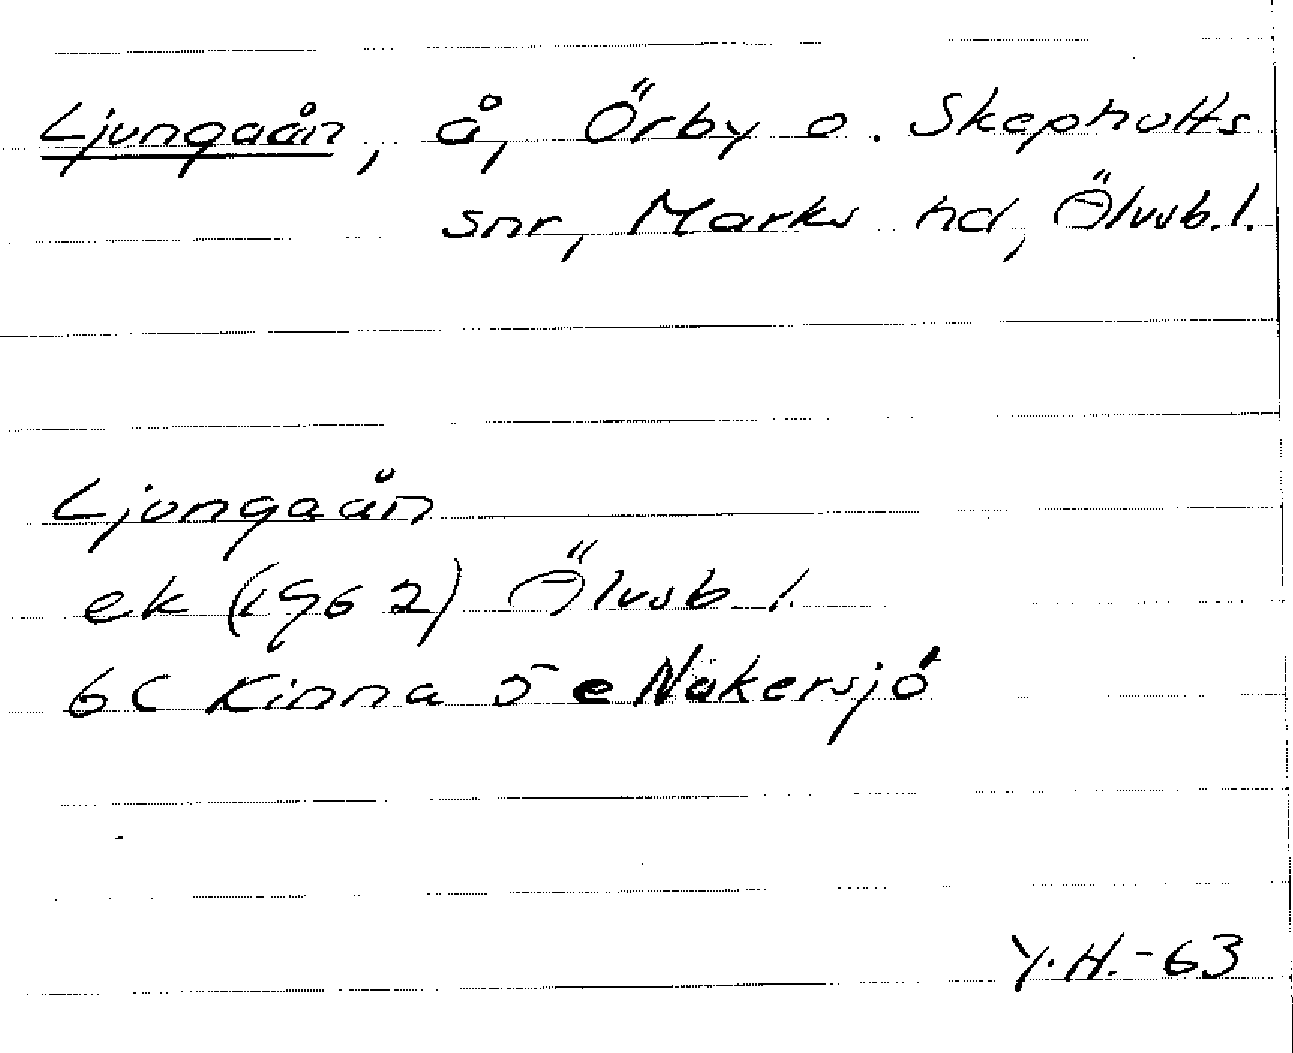 Ljungaån, å, Örby o. Skephults
snr, Marks hd, Älvsb.l.
Ljungaån
ek (1962) Älvsb l.
6C Kinna 5 e Nakersjö
Y.H.-63